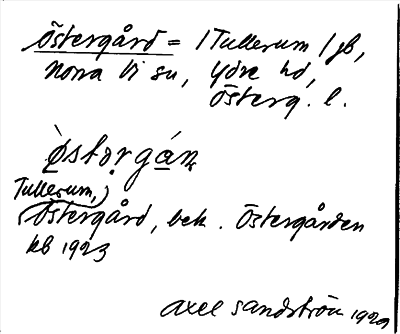 Östergård = /Tullerum/ gb,
Norra Vi sn, Ydre hd,
Österg. l.
Tullerum,
Östergård, bek. Östergården
kb 1923
Axel Sandström 1929